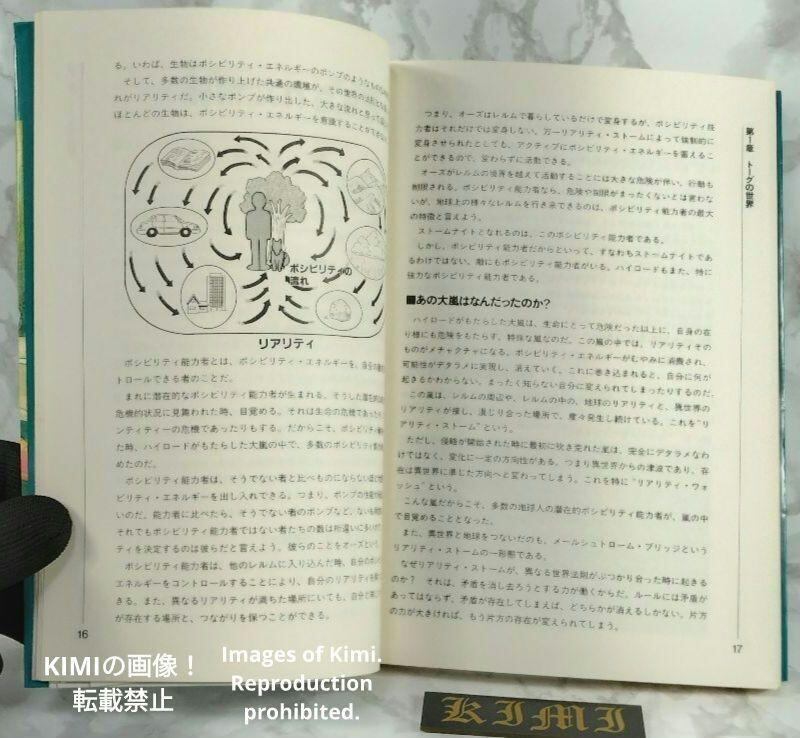 る。いわば、生物はポシビリティ・エネルギーのポンプのようなもの
そして、多数の生物が作り上げた共通の環境が、その世界の法
れがリアリティだ。小さなポンプが作り出した、大きな流れと思って
ほとんどの生物は、ポシビリティ・エネルギーを意識することができ
ポシビリティの
流れ
リアリティ
ポシビリティ能力者とは、ポシビリティ・エネルギーを、自分の意
トロールできる者のことだ。
まれに潜在的なポシビリティ能力者が生まれる。そうした潜在的
危機的状況に見舞われた時、目覚める。それは生命の危機であったり
ンティティーの危機であったりもする。だからこそ、ポシビリティ
た時、ハイロードがもたらした大嵐の中で、多数のポシビリティ能
めたのだ。
ポシビリティ能力者は、そうでない者と比べものにならないほど
ビリティ・エネルギーを出し入れできる。つまり、ポンプの性能が
いのだ。能力者に比べたら、そうでない者のポンプなど、ないも同
それでもポシビリティ能力者ではない者たちの数は桁違いに多い
ティを決定するのは彼らだと言えよう。彼らのことをオーズという。
ポシビリティ能力者は、他のレルムに入り込んだ時、自分のポシ
エネルギーをコントロールすることにより、自分のリアリティを
きる。また、異なるリアリティが満ちた場所にいても、自分と
が存在する場所と、つながりを保つことができる。
16
つまり、オーズはレルムで暮らしているだけで変身するが、ポシビリティ能
力者はそれだけでは変身しない。万一リアリティ・ストームによって強制的に
変身させられたとしても、アクティブにポシビリティ・エネルギーを蓄えるこ
とができるので、変わらずに活動できる。
オーズがレルムの境界を越えて活動することには大きな危険が伴い、行動も
制限される。ポシビリティ能力者なら、危険や制限がまったくないとは言わな
いが、地球上の様々なレルムを行き来できるのは、ポシビリティ能力者の最大
の特徴と言えよう。
ストームナイトとなれるのは、このポシビリティ能力者である。
しかし、ポシビリティ能力者だからといって、すなわちストームナイトであ
るわけではない。敵にもポシビリティ能力者がいる。ハイロードもまた、特に
強力なポシビリティ能力者である。
■あの大嵐はなんだったのか?
ハイロードがもたらした大嵐は、生命にとって危険だった以上に、自身の在
り様にも危険をもたらす、特殊な嵐なのだ。この嵐の中では、リアリティその
ものがメチャクチャになる。ポシビリティ・エネルギーがむやみに消費され、
可能性がデタラメに実現し、消えていく。これに巻き込まれると、自分に何が
起きるかわからない。まったく知らない自分に変えられてしまったりするのだ。
この嵐は、レルムの周辺や、レルムの中の、地球のリアリティと、異世界の
リアリティが接し、混じり合った場所で、度々発生し続けている。これを“リ
アリティ・ストーム”という。
ただし、侵略が開始された時に最初に吹き荒れた嵐は、完全にデタラメなわ
けではなく、変化に一定の方向性がある。つまり異世界からの津波であり、存
在は異世界に準じた方向へと変わってしまう。これを特に“リアリティ・ウォ
ッシュ”という。
こんな嵐だからこそ、多数の地球人の潜在的ポシビリティ能力者が、嵐の中
で目覚めることとなった。
また、異世界と地球をつないだのも、メールシュトローム・ブリッジという
リアリティ・ストームの一形態である。
なぜリアリティ・ストームが、異なる世界法則がぶつかり合った時に起きる
のか? それは、矛盾を消し去ろうとする力が働くからだ。ルールには矛盾が
あってはならず、矛盾が存在してしまえば、どちらかが消えるしかない。片方
の力が大きければ、もう片方の存在が変えられてしまう。
第1章 トーグの世界
17
KIMIの画像！
転載禁止
Images of Kimi.
Reproduction
prohibited.
KIMI